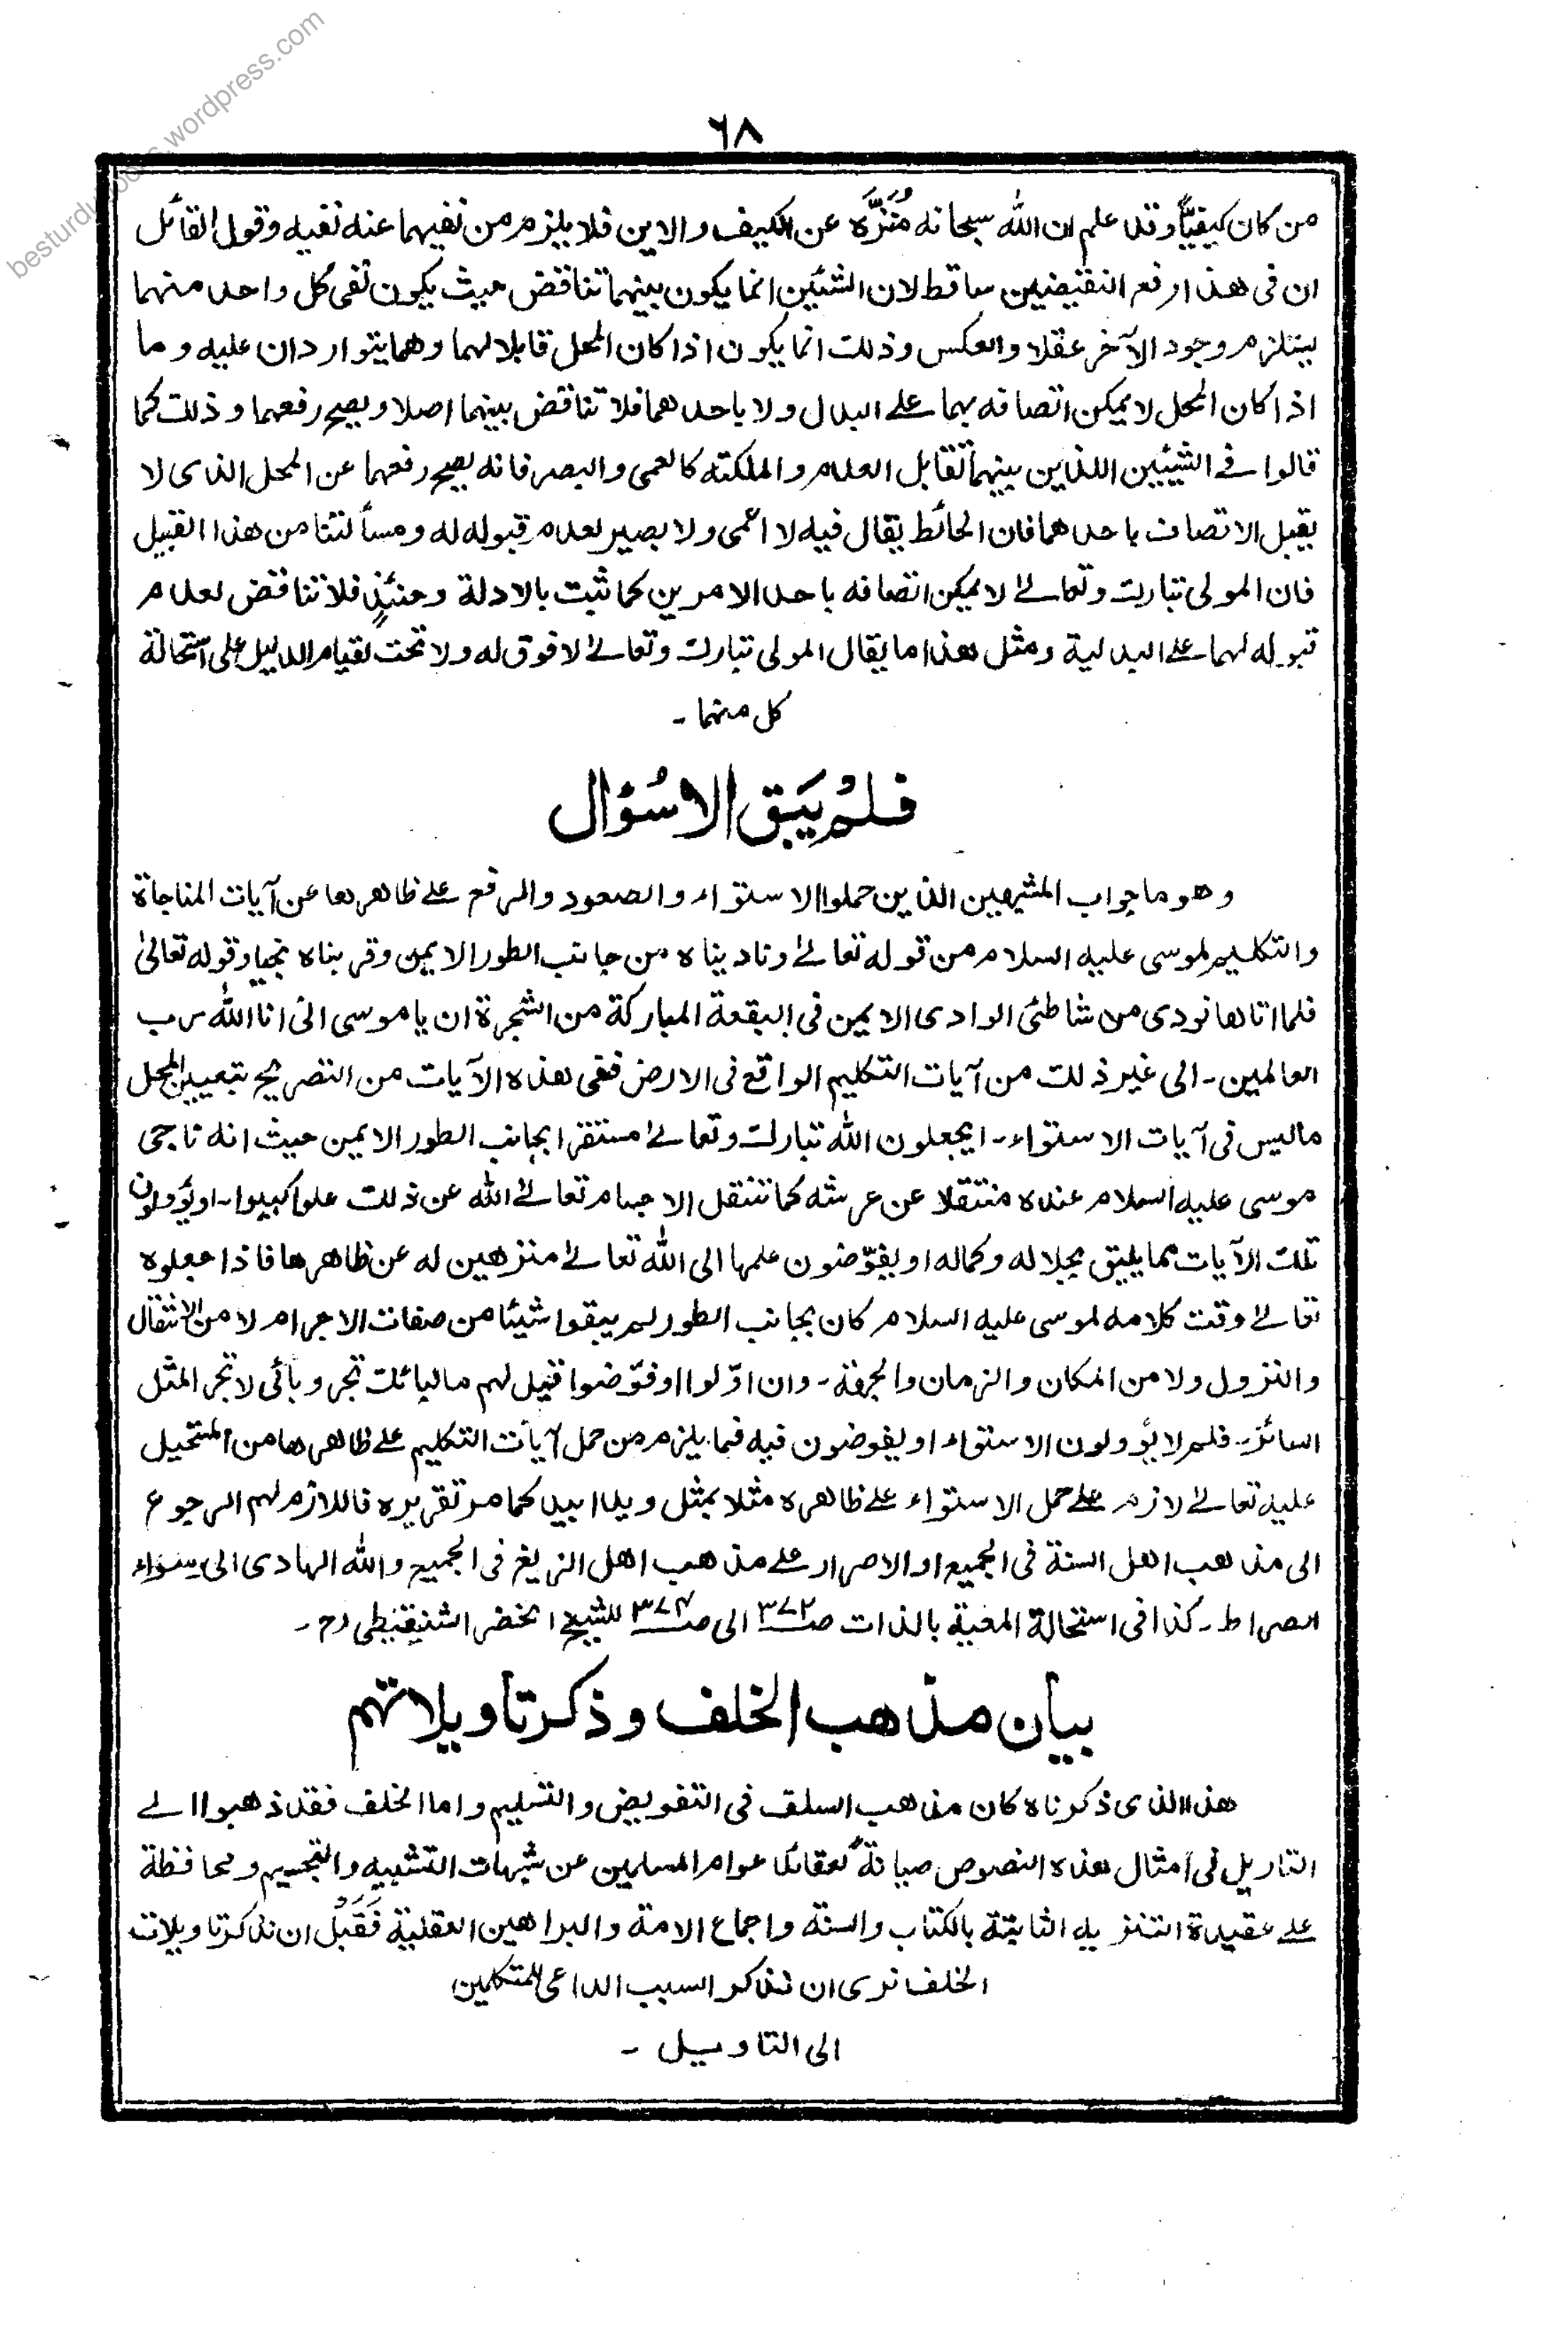 besturdubooks.wordpress.com
٦٨
من كان كيفيّاً وقد علم ان الله سبحانه مُنَزَّه عن الكيف والاين فلا يلزم من نفيهما عنه نفيه وقول القائل
ان فى هذا رفع النقيضين ساقط لان الشئين انما يكون بينهما تناقض حيث يكون نفى كل واحد منهما
يستلزم وجود الآخر عقلا والعكس وذلك انما يكون اذا كان المحل قابلا لهما وهما يتواردان عليه وما
اذا كان المحل لا يمكن اتصافه بهما على البدل ولا باحدهما فلا تناقض بينهما اصلا ويصح رفعهما وذلك كما
قالوا فى الشيئين اللذين بينهما تقابل العدم والملكته كالعمى والبصر فانه يصح رفعهما عن المحل الذى لا
يقبل الاتصاف باحدهما فان الحائط يقال فيه لا اعمى ولا بصير لعدم قبوله له ومسألتنا من هذا القبيل
فان المولى تبارك وتعالے لا يمكن اتصافه باحد الامرين كما ثبت بالادلة وحنئذٍ فلا تناقض لعدم
قبوله لهما على البدلية ومثل هذا ما يقال المولى تبارك وتعالے لا فوق له ولا تحت لقيام الدليل على استحالة
كل منهما ۔
فلم يَبق الا سُؤال
وهو ما جواب المشبهين الذين حملوا الاستواء والصعود والرفع على ظاهرها عن آيات المناجاة
والتكليم لموسى عليه السلام من قوله تعالے وناديناه من جانب الطور الايمن وقربناه نجيا وقوله تعالىٰ
فلما اتاها نودى من شاطئ الوادى الايمن فى البقعة المباركة من الشجرة ان يا موسى انى انا الله رب
العالمين ۔ الى غير ذلك من آيات التكليم الواقع فى الارض ففى هذه الآيات من التصريح بتعيين المحل
ما ليس فى آيات الاستواء ۔ ايجعلون الله تبارك وتعالے مستقرا بجانب الطور الايمن حيث انه ناجى
موسى عليه السلام عنده منتقلا عن عرشه كما تنتقل الاجسام تعالے الله عن ذلك علوا كبيوا ۔ او يؤولون
تلك الآيات بما يليق بجلاله وكماله او يفوّضون علمها الى الله تعالے منزهين له عن ظاهرها فاذا جعلوه
تعالے وقت كلامه لموسى عليه السلام كان بجانب الطور لم يبقوا شيئا من صفات الاجرام لا من الانتقال
والنزول ولا من المكان والزمان والجهة ۔ وان اوّلوا او فوّضوا قيل لهم ما لبائك تجر وبائى لا تجر المثل
السائر ۔ فلم لا يؤولون الاستواء او يفوضون فيه فما يلزم من حمل آيات التكليم على ظاهرها من المستحيل
عليه تعالے لازم على حمل الاستواء على ظاهره مثلا بمثل ويدا بيد كما مر تقريره فاللازم لهم الرجوع
الى مذهب اهل السنة فى الجميع او الاصرار على مذهب اهل الزيغ فى الجميع والله الهادى الى سواء
الصراط ۔ كذا فى استحالة المعية بالذات صـ٣٧٢ الى صـ٣٧٤ للشيخ الخضر الشنقيطى رح ۔
بيان مذهب الخلف وذكر تاويلاتهم
هذا الذى ذكرناه كان مذهب السلف فى التفويض والتسليم واما الخلف فقد ذهبوا الے
التاريل فى امثال هذه النصوص صيانةً لعقائد عوام المسلمين عن شبهات التشبيه والتجسيم ومحافظة
على عقيدة التنزيه الثابتة بالكتاب والسنة واجماع الامة والبراهين العقلية فَقَبْل ان نذكر تاويلات
الخلف نرى ان نذكر السبب الداعى للمتكلمين
الى التاويل ۔